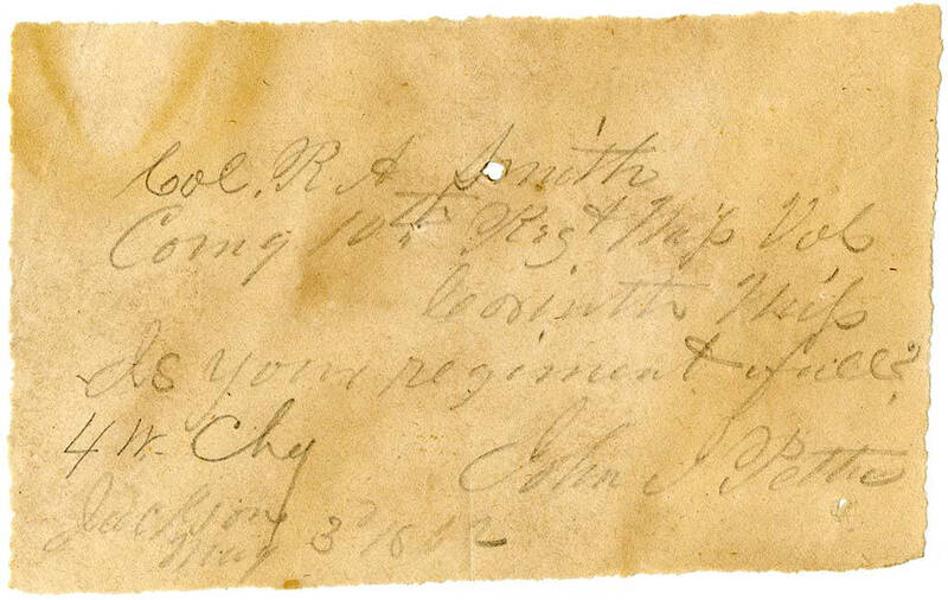 Col. R A Smith
Comg 10th Regt Miſs Vol
Corinth Miſs
Is your regiment full?
4 W. Chg
John J Pettus
Jackson
May 3d 1862